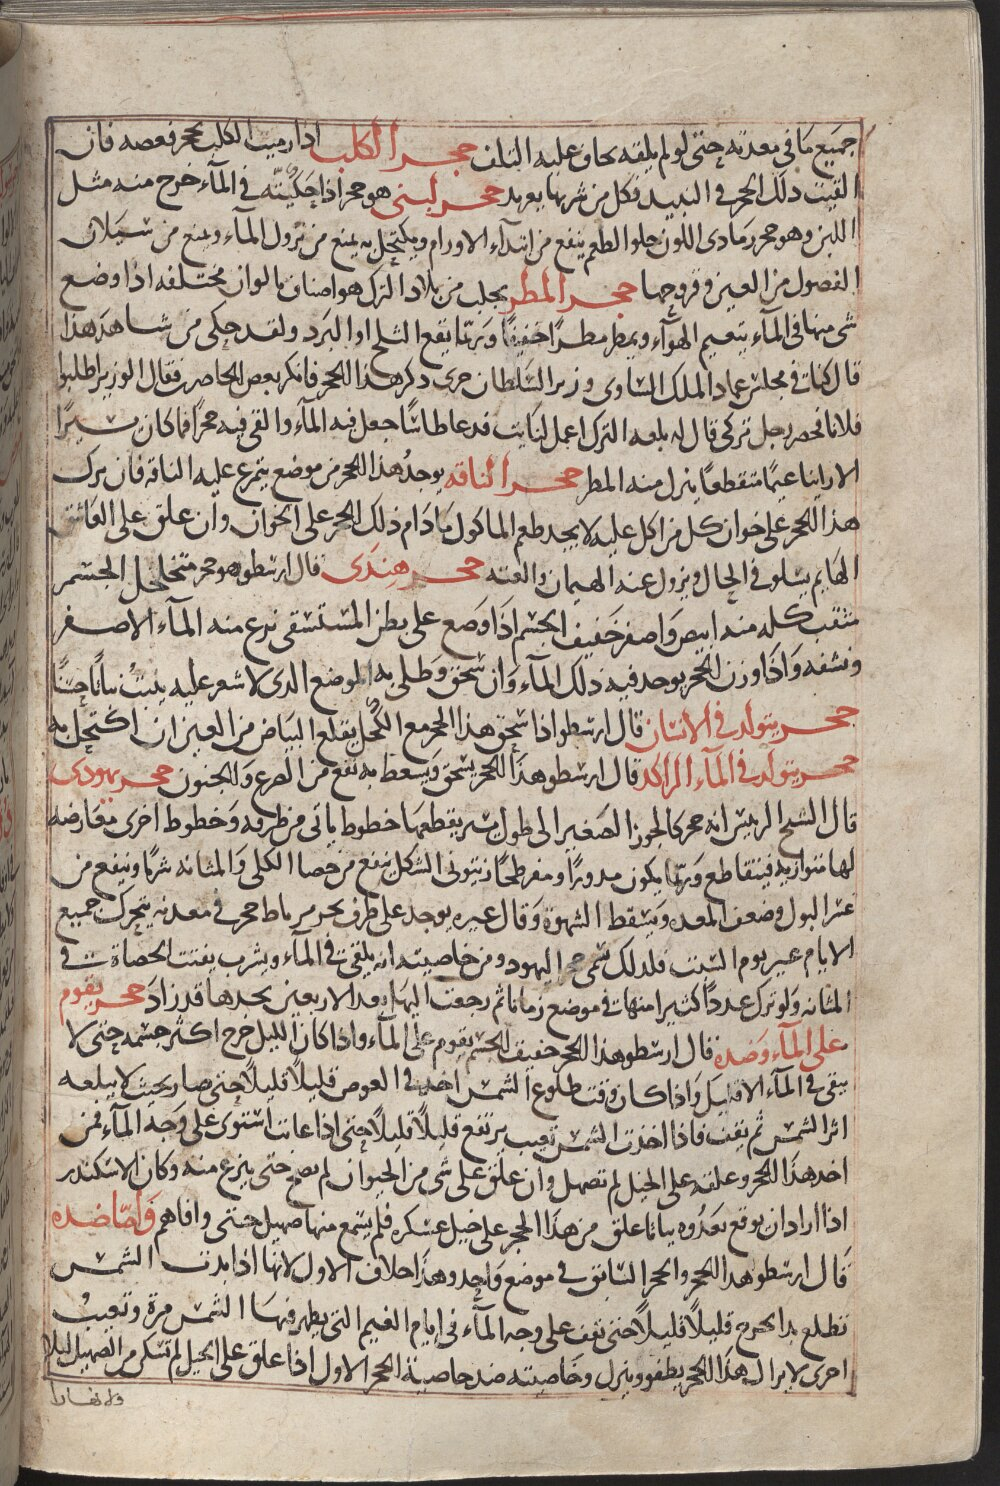 جميع ما في معدته حتى لو لم يلقه يخاف عليه التلف حجر الكلب اذا رميت الكلب بحجر فعضه فان
القيت ذلك الحجر في النبيذ فكل من شربها يعربد حجر لبنى هو حجر اذا حككته في الماء خرج منه مثل
اللبن وهو حجر رمادى اللون حلو الطعم ينفع من ابتداء الاورام ويكتحل به يمنع من نزول الماء ويمنع من سيلان
الفصول من العين وقروحها حجر المطر يجلب من بلاد الترك هو اصناف بالوان مختلفه اذا وضع
شى منها فى الماء يتغيم الهواء ويمطر مطرا خفيفا وربما يقع الثلج او البرد ولقد حكى من شاهد هذا
قال كنا في مجلس عماد الملك الساوى وزير السلطان جرى ذكر هذا الحجر فانكر بعض الحاضرين فقال الوزير اطلبوا
فلانا فحضر رجل تركى قال له بلغه الترك اعمل لنا يت فدعا طاسا جعل فيه الماء والقى فيه حجرا فما كان يسيرا
الا راينا غيما متقطعا ينزل منه المطر حجر الناقه يوجد هذا الحجر من موضع يتمرغ عليه الناقه فان ترك
هذا الحجر على خوان كل من اكل عليه لا يجد طعم الماكول ما دام ذلك الحجر على الخوان وان علق على العاشق
الهايم يسلو في الحال ويزول عنه الهيمان والفتنه حجر هندى قال ارسطو هو حجر متخلخل الجسم
مثقب كله منه ابيض واصفر خفيف الجسم اذا وضع على بطن المستسقى نزع منه الماء الاصفر
ونشفه واذا وزن الحجر يوجد فيه ذلك الماء وان سحق وطلى به الموضع الذى لا شعر عليه ينبت نباتا حسنا
حجر يتولد في الانسان قال ارسطو اذا سحق هذا الحجر مع الكحل يقلع البياض من العين ان اكتحل به
حجر يتولد في الماء الراكد قال ارسطو هذا الحجر يسحق ويسعط به نفع من الصرع والجنون حجر يهودى
قال الشيخ الرئيس انه حجر كالجوز الصغير الى طول يسير يقطعها خطوط ياتى من طرفه وخطوط اخرى معارضه
لها متوازيه فيتقاطع وربما يكون مدورا ومفرطحا زيتونى الشكل ينفع من حصا الكلى والمثانه شربا وينفع من
عسر البول وضعف المعده ويسقط الشهوة وقال غيره يوجد على طرف بحر حجر في معدنه يتحرك جميع
الايام غير يوم السبت فلذلك سمى حجر اليهود ومن خاصيته انه يلقى في الماء ويشرب يفتت الحصاة في
المثانه ولو ترك عددا كثيرا منها في موضع زمانا ثم رجعت اليها بعد الاربعين يجدها قد زاد حجر يقوم
على الماء وضده قال ارسطو هذا الحجر خفيف الجسم يقوم على الماء واذا كان الليل خرج اكثر جسمه حتى لا
يبقى في الماء الا قليل واذا كان وقت طلوع الشمس اخذ في الغوص قليلا قليلا حتى صار بحيث لا يبلغه
اثر الشمس ثم يقف فاذا اخذت الشمس تغيب يرتفع قليلا قليلا حتى اذا غابت استوى على وجه الماء فمن
اخذ هذا الحجر وعلقه على الخيل لم تصهل وان علق على شى من الحيوان لم يصح حتى ينزع منه وكان الاسكندر
اذا اراد ان يوقع بعدوه بياتا علق من هذا الحجر على خيل عسكره فلم يسمع منها صهيل حتى وافاهم واما ضده
قال ارسطو هذا الحجر والحجر السابق في موضع واحد وهذا خلاف الاول لانها اذا بدت الشمس
تطلع بدا يخرج قليلا قليلا حتى تقف على وجه الماء في ايام الغيم التى يظهر فيها الشمس مرة وتغيب
اخرى لا يزال هذا الحجر يطفو وينزل وخاصيته ضد خاصية الحجر الاول اذا علق على الخيل لم تسكن من الصهيل ليلا
ولا نهارا